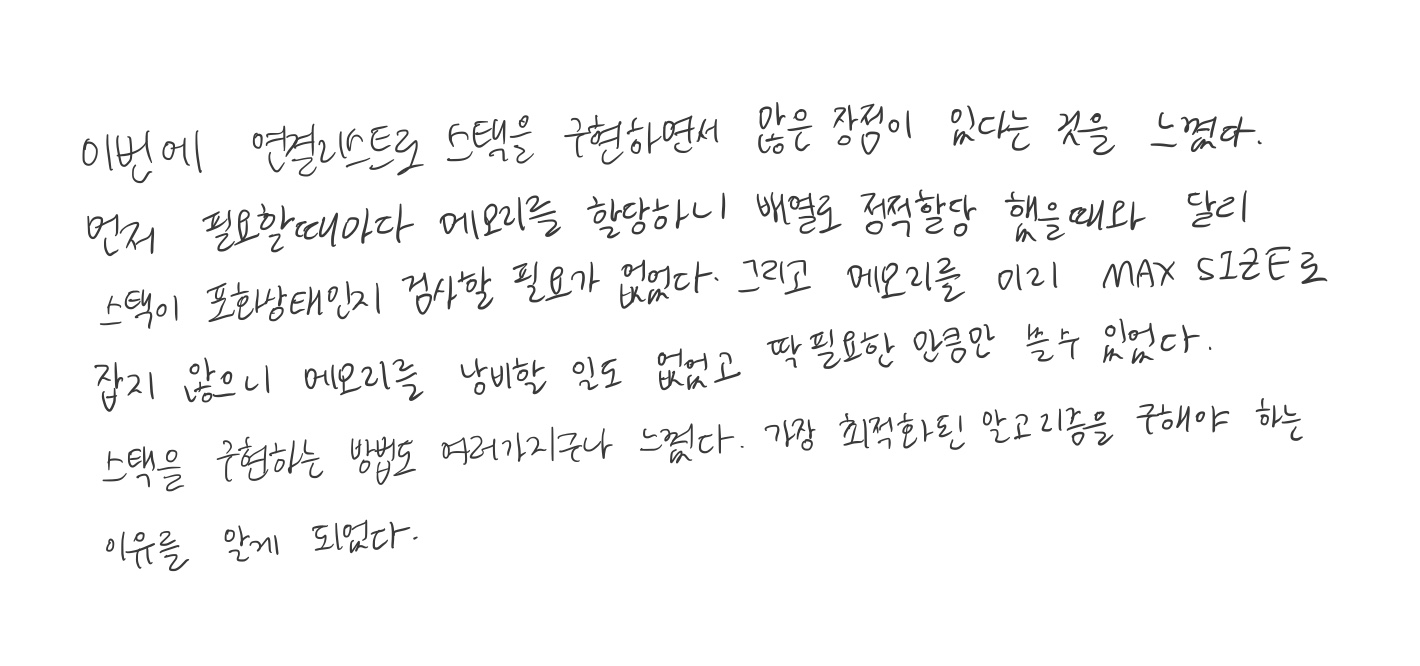 이번에 연결리스트로 스택을 구현하면서 많은 장점이 있다는 것을 느꼈다.
먼저 필요할때마다 메모리를 할당하니 배열로 정적할당 했을때와 달리
스택이 포화상태인지 검사할 필요가 없었다. 그리고 메모리를 미리 MAX SIZE로
잡지 않으니 메모리를 낭비할 일도 없었고 딱 필요한 만큼만 쓸수 있었다.
스택을 구현하는 방법도 여러가지구나 느꼈다. 가장 최적화된 알고리즘을 구해야 하는
이유를 알게 되었다.